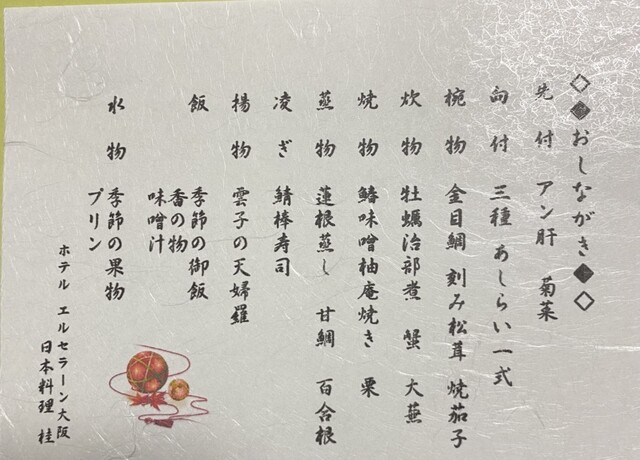 ◇◆おしながき◆◇
先付 アン肝 菊菜
向付 三種 あしらい一式
椀物 金目鯛 刻み松茸 焼茄子
炊物 牡蠣治部煮 蟹 大蕪
焼物 鰆味噌柚庵焼き 栗
蒸物 蓮根蒸し 甘鯛 百合根
凌ぎ 鯖棒寿司
揚物 雲子の天婦羅
飯 季節の御飯
香の物
味噌汁
水物 季節の果物
プリン
ホテル エルセラーン大阪
日本料理 桂